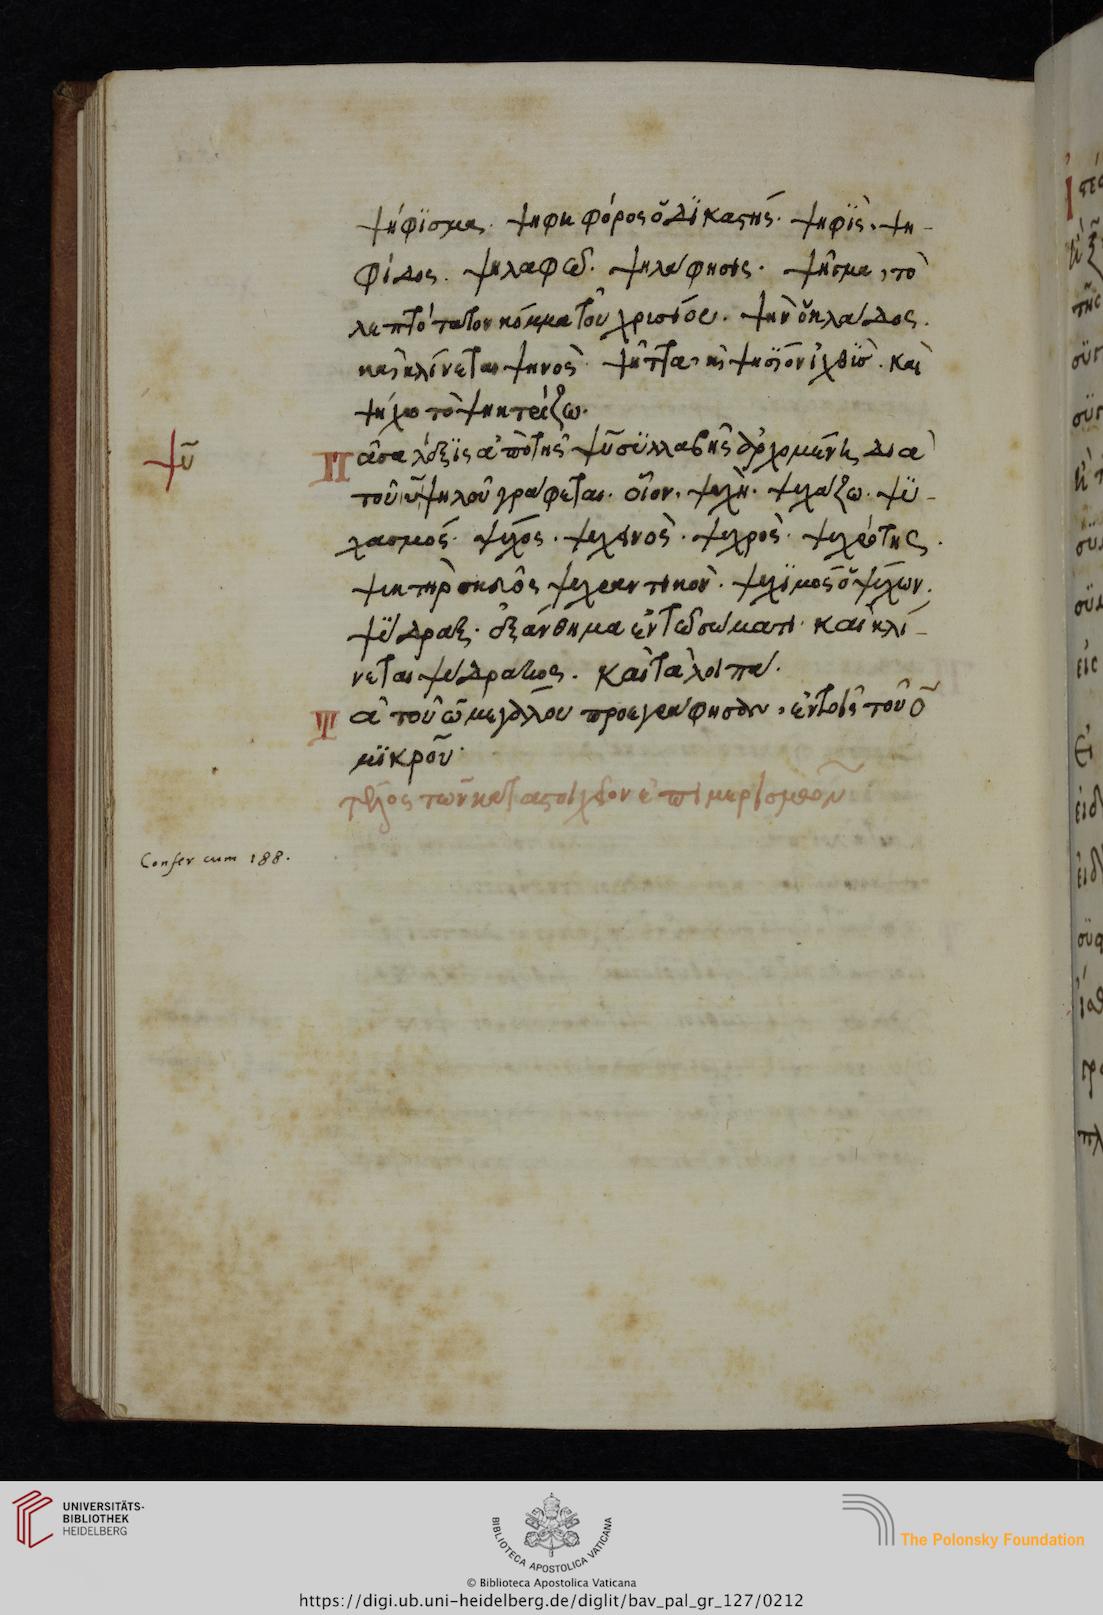 ψήφϊσμα. ψηφηφόρος ὁ δϊκαστής. ψηφϊς, ψη-
φίδος. ψηλαφῶ. ψηλάφησις. ψῆσμα, τὸ
λεπτότατον κόμμα τοῦ χρυσίου. ψὴν
καὶ κλίνεται ψηνὸς. ψῆττα, ἰχθϋς. καὶ
ψήχω τὸ ψηκτρίζω.
ψῦ
Πᾶσα λέξϊς ἀπὸ τῆς ψῦ συλλαβῆς ἀρχομένη, διὰ
τοῦ ῦ ψηλοῦ γράφεται. οἷον, ψυχὴ. ψυχάζω. ψϋ-
χασμός. ψύχος. ψυχινὸς. ψυχρὸς. ψυχρότης.
ψυκτὴρ ψυχραντικὸν. ψυχϊμος ὁ ψύχων.
ψύδραξ. ἐξάνθημα ἐν τῶ σώματι. καὶ κλί-
νεται ψύδρακος. καὶ τὰ λοιπά.
Τὰ τοῦ ὦ μεγάλου προεγράφησαν, ἐν τοῖς τοῦ ὂ
μϊκροῦ.
τέλος τῶν κατὰ στοιχεῖον ἐπιμερισμῶν
Confer cum 188.
UNIVERSITÄTS-
BIBLIOTHEK
HEIDELBERG
BIBLIOTECA APOSTOLICA VATICANA
The Polonsky Foundation
© Biblioteca Apostolica Vaticana
https://digi.ub.uni-heidelberg.de/diglit/bav_pal_gr_127/0212